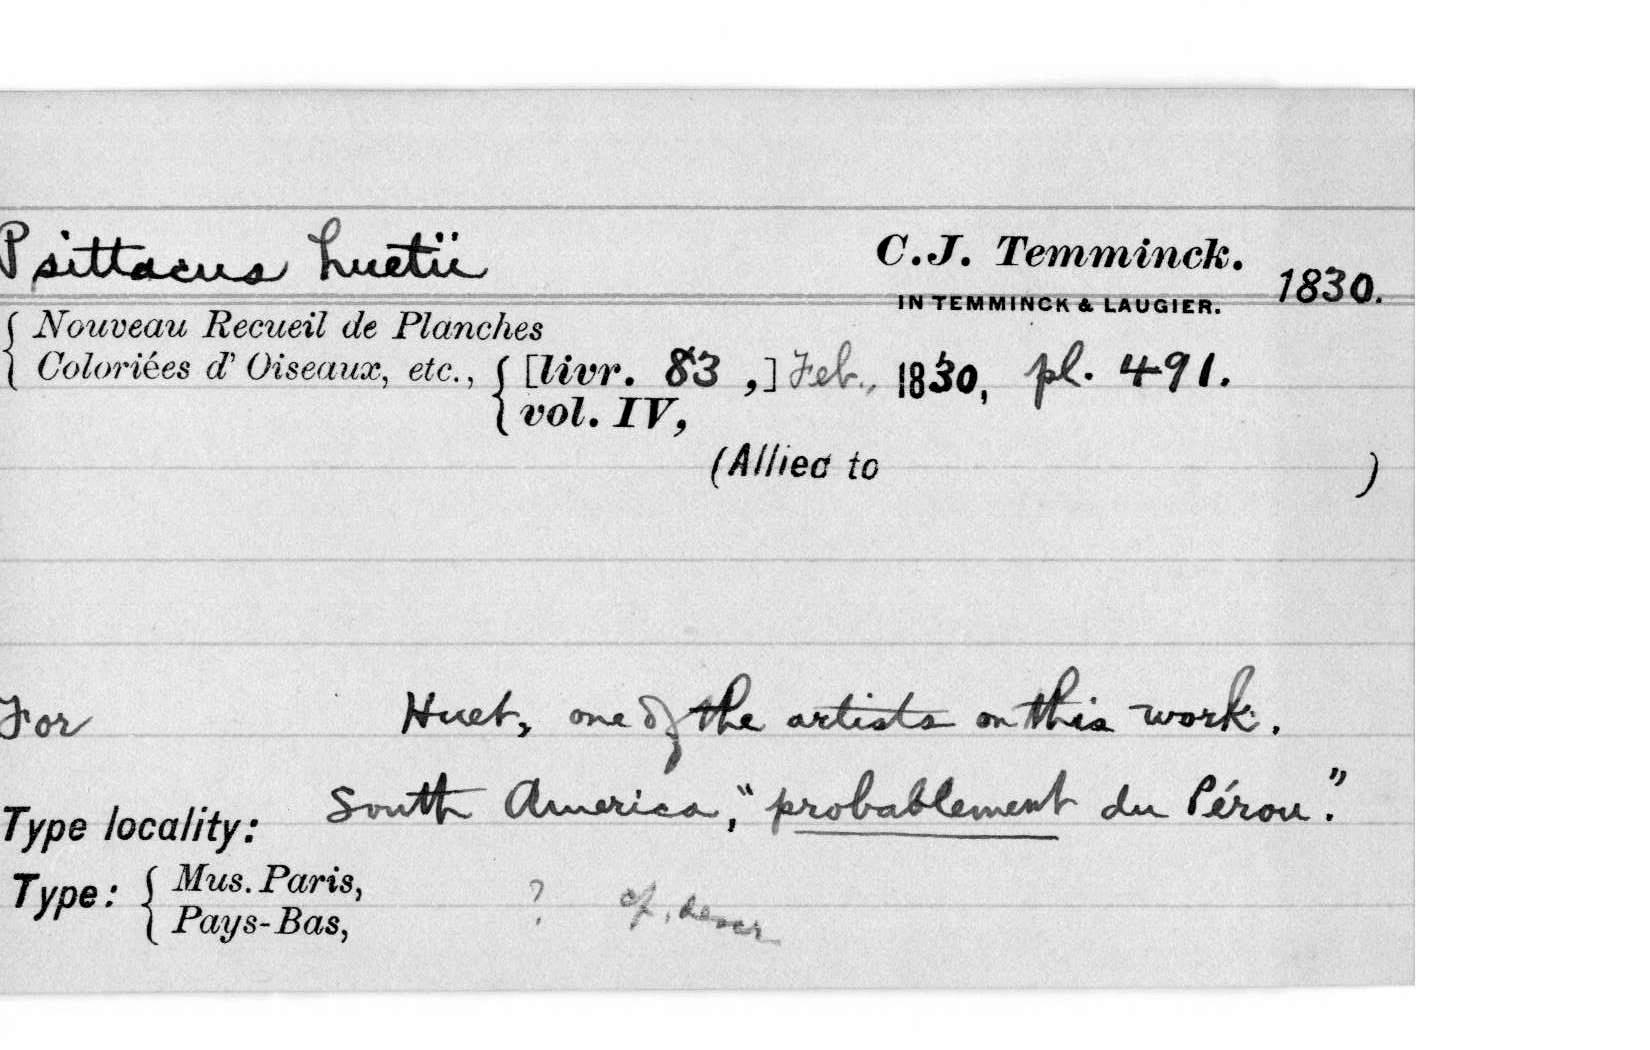 Psittacus huetii C.J. Temminck. 1830.
IN TEMMINCK & LAUGIER.
{ Nouveau Recueil de Planches
Coloriées d' Oiseaux, etc., { [livr. 83 ,] Feb., 1830, pl. 491.
vol. IV,
(Allied to )
For Huet, one of the artists on this work.
Type locality: South America, "probablement du Pérou".
Type: { Mus. Paris,
Pays-Bas, ? cf. descr